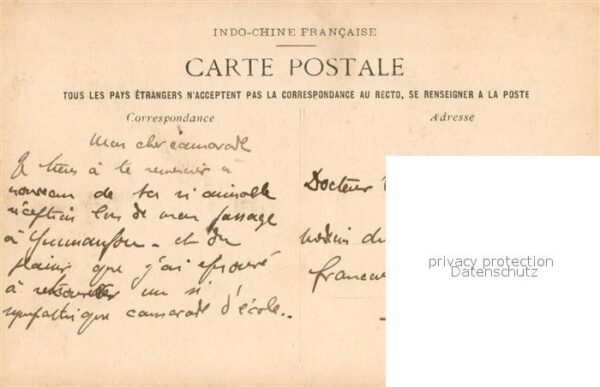 INDO-CHINE FRANÇAISE
CARTE POSTALE
TOUS LES PAYS ÉTRANGERS N'ACCEPTENT PAS LA CORRESPONDANCE AU RECTO, SE RENSEIGNER A LA POSTE
Correspondance
Adresse
Mon cher camarade
Je tiens à te remercier à
nouveau de ta si aimable
réception lors de mon passage
à Yunnanfou - et du
plaisir que j'ai éprouvé
à un si
sympathique camarade d'école..
Docteur
médecin du
français
privacy protection
Datenschutz